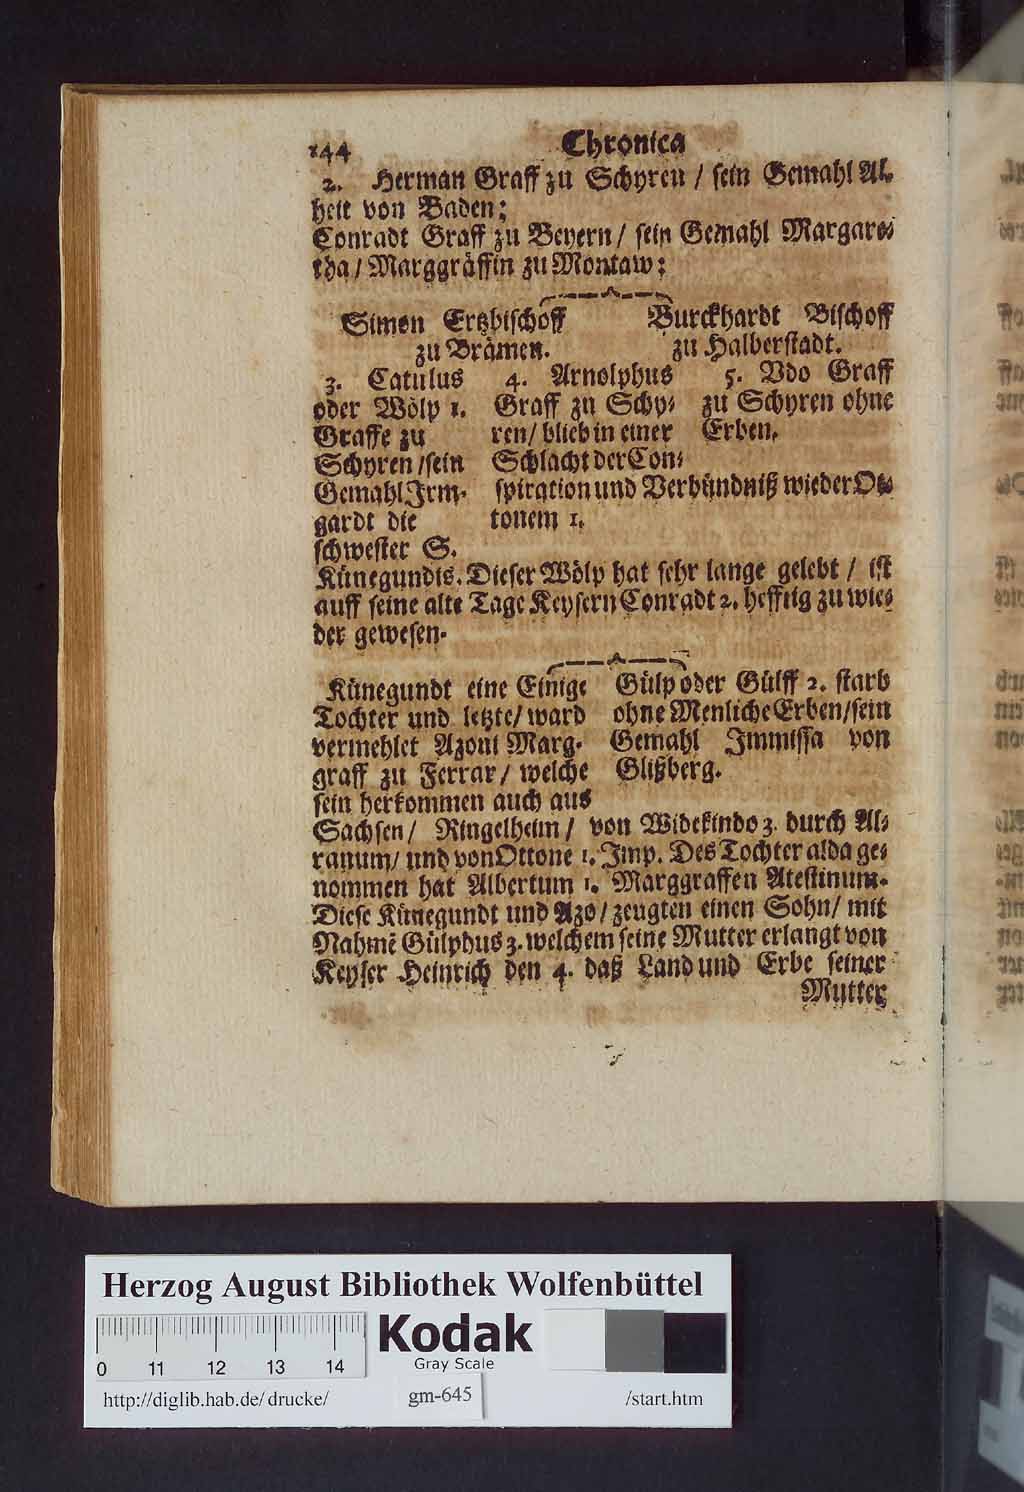 144 Chronica
2. Herman Graff zu Schyren / sein Gemahl Al-
heit von Baden;
Conradt Graff zu Beyern / sein Gemahl Margare-
tha / Marggräffin zu Montaw;
Simon Ertzbischoff
zu Brämen.
Burckhardt Bischoff
zu Halberstadt.
3. Catulus
oder Wölp 1.
Graffe zu
Schyren / sein
Gemahl Irm-
gardt die
schwester S.
4. Arnolphus
Graff zu Schy-
ren / blieb in einer
Schlacht der Con-
spiration und Verbündniß wieder Ot-
tonem 1.
5. Vdo Graff
zu Schyren ohne
Erben.
Künegundis. Dieser Wölp hat sehr lange gelebt / ist
auff seine alte Tage Keysern Conradt 2. hefftig zu wie-
der gewesen.
Künegundt eine Einige
Tochter und letzte / ward
vermehlet Azoni Marg-
graff zu Ferrar / welche
sein herkommen auch aus
Gülp oder Gülff 2. starb
ohne Menliche Erben / sein
Gemahl Immissa von
Glißberg.
Sachsen / Ringelheim / von Widekindo 3. durch Al-
ranum / und von Ottone 1. Imp. Des Tochter alda ge-
nommen hat Albertum 1. Marggraffen Atestinum.
Diese Künegundt und Azo / zeugten einen Sohn / mit
Nahmẽ Gülphus 3. welchem seine Mutter erlangt von
Keyser Heinrich den 4. daß Land und Erbe seiner
Mutter
Herzog August Bibliothek Wolfenbüttel
0 11 12 13 14
Kodak
Gray Scale
http://diglib.hab.de/drucke/ gm-645 /start.htm